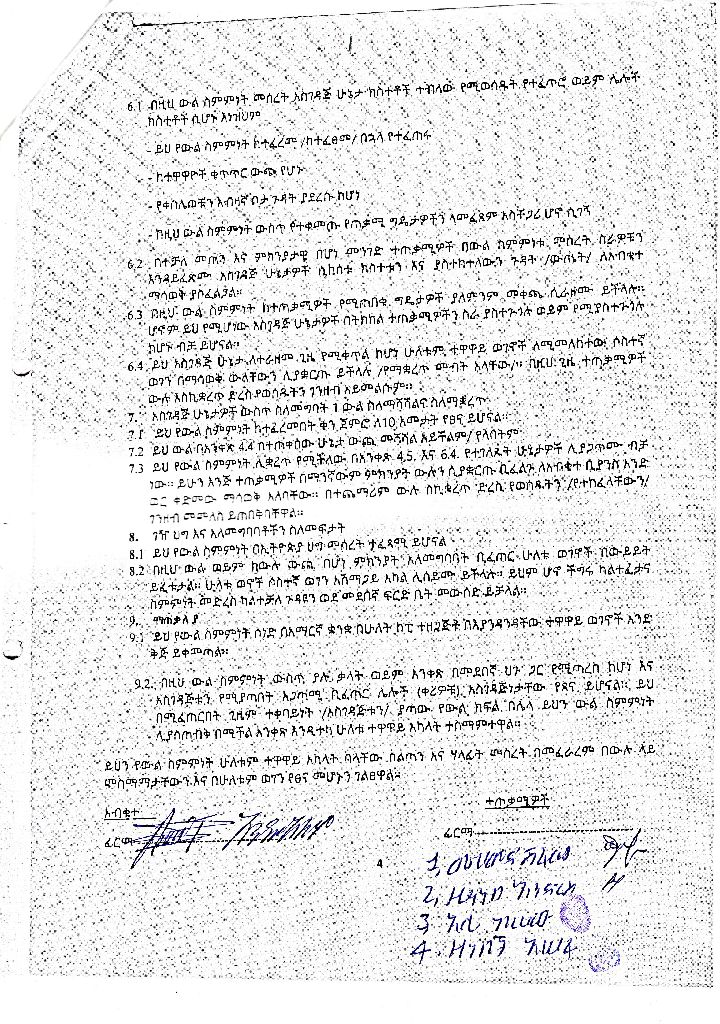 6.1 በዚህ ውል ስምምነት መሰረት አስገዳጅ ሁኔታ ክስተቶች ተብለው የሚወሰዱት የተፈጥሮ ወይም ሌሎች
ክስቲቶች ሲሆኑ እነዝህም
- ይህ የውል ስምምነት ከተፈረመ /ከተፈፀመ/ በኋላ የተፈጠሩ
- ከተዋዋዮች ቀጥጥር ውጪ የሆኑ
- የቀበሌወቹን አብዛኛ ቦታ ጉዳት ያደረሱ ከሆነ
- ከዚህ ውል ስምምነት ውስጥ የተቀመጡ የጠቃሚ ግዴታዎችን ላመፈጸም አስቸጋሪ ሆኖ ሲገኝ
6.2 በተቻለ መጠን እና ምክንያታዊ በሆነ መንገድ ተጠቃሚዎች በውል ስምምነቱ መሰረት ስራዎቹን
እንዳይፈጽሙ አስገዳጅ ሁኔታዎች ሲከሰቱ ክስተቱን እና ያስተከተለውን ጉዳት /ውስነት/ ለአብቁተ
ማሳወቅ ያስፈልጋል።
6.3 በዚህ ውል ስምምነት ከተጠቃሚዎች የሚጠበቁ ግዴታዎች ያለምንም መቀጫ ሲራዘሙ ይችላሉ።
ሆኖም ይህ የሚሆነው አስገዳጅ ሁኔታዎች በትክክል ተጠቃሚዎችን ስራ ያስተጓጎሉ ወይም የሚያስተጓጎሉ
ከሆኑ ብቻ ይሆናል።
6.4 ይህ አስገዳጅ ሁኔታ ለተራዘመ ጊዜ የሚቀጥል ከሆነ ሁለቱም ተዋዋይ ወገኖች ለሚመለከተው ሶስተኛ
ወገን በማሳወቅ ውልቸውን ሊያቋርጡ ይችላሉ /የማቋረጥ መብት አላቸው/። በዚህ ጊዜ ተጠቃሚዎች
ውሉ እስኪቋረጥ ድረስ የወሰዱትን ገንዘብ አይመልሱም።
7. አስገዳጅ ሁኔታዎች ውስጥ ስለመግባት 1 ውል ስለማሻሻልና ስለማቋረጥ
7.1 ይህ የውል ስምምነት ከተፈረመበት ቅን ጀምሮ ለ10 አመታት የፀና ይሆናል።
7.2 ይህ ውል በአንቀጽ 4.4 በተጠቀሰው ሁኔታ ውጪ መሻሻል አይችልም/ የለበትም
7.3 ይህ የውል ስምምነት ሊቋረጥ የሚችለው በአንቀጽ 4.5. እና 6.4. የተገለጹት ሁኔታዎች ሊያጋጥሙ ብቻ
ነው። ይሁን እንጅ ተጠቃሚዎች በማንኛውም ምክንያት ውሉን ሲያቋርጡ ቢፈልጉ ለአብቁተ ቢያንስ አንድ
ወር ቀድመው ማሳወቅ አለባቸው። በተጨማሪም ውሉ ስኪቋረጥ ድረስ የወሰዱትን /የተከፈላቸውን/
ገንዘብ መመለስ ይጠበቅባቸዋል።
8. ገዥ ህግ እና አለመግባባቶችን ስለመፍታት
8.1 ይህ የውል ስምምነት በኢትዮጵያ ህግ መሰረት ተፈጻሚ ይሆናል
8.2 በዚህ ውል ወይም ከውሉ ውጪ በሆነ ምክንያት አለመግባባት ቢፈጠር ሁለቱ ወገኖች በውይይት
ይፈቱታል። ሁለቱ ወኖች ሶስተኛ ወገን አሸማጋይ አካል ሊሰይሙ ይችላሉ። ይህም ሆኖ ችግሩ ካልተፈታና
ስምምነት መድረስ ካልተቻለ ጉዳዩን ወደ መደበኛ ፍርድ ቤት መውሰድ ይቻላል።
9. ማጠቃለያ
9.1 ይህ የውል ስምምነት ሰነድ በአማርኛ ቋንቋ በሁለት ኮፒ ተዘጋጅቶ በእያንዳንዳቸው ተዋዋይ ወገኖች አንድ
ቅጅ ይቀመጣል።
9.2. በዚህ ውል ስምምነት ውስጥ ያሉ ቃላት ወይም አንቀጽ በመደበኛ ህጉ ጋር የሚጣረስ ከሆነ እና
አስገዳጅቱን የሚያጣበት አጋጣሚ ቢፈጠር ሌሎች (ቀሪዎቹ) አስገዳጅነታቸው የጸና ይሆናል። ይህ
በሚፈጠርበት ጊዜም ተቀባይነት /አስገዳጅቱን/ ያጣው የውል ክፍል በሌላ ይህን ውል ስምምነት
ሊያስጠብቅ በሚችል አንቀጽ እንዲተካ ሁለቱ ተዋዋይ አካላት ተስማምተዋል።
ይህን የውል ስምምነት ሁለቱም ተዋዋይ አካላት ባላቸው ስልጣን እና ሃላፊት መሰረት በመፈራረም በውሉ ላይ
መስማማታቸውን እና በሁለቱም ወገን የፀና መሆኑን ገልፀዋል።
አብቁተ
ተጠቃሚዎች
ፊርማ
ፊርማ
4
1,
2,
3
4.